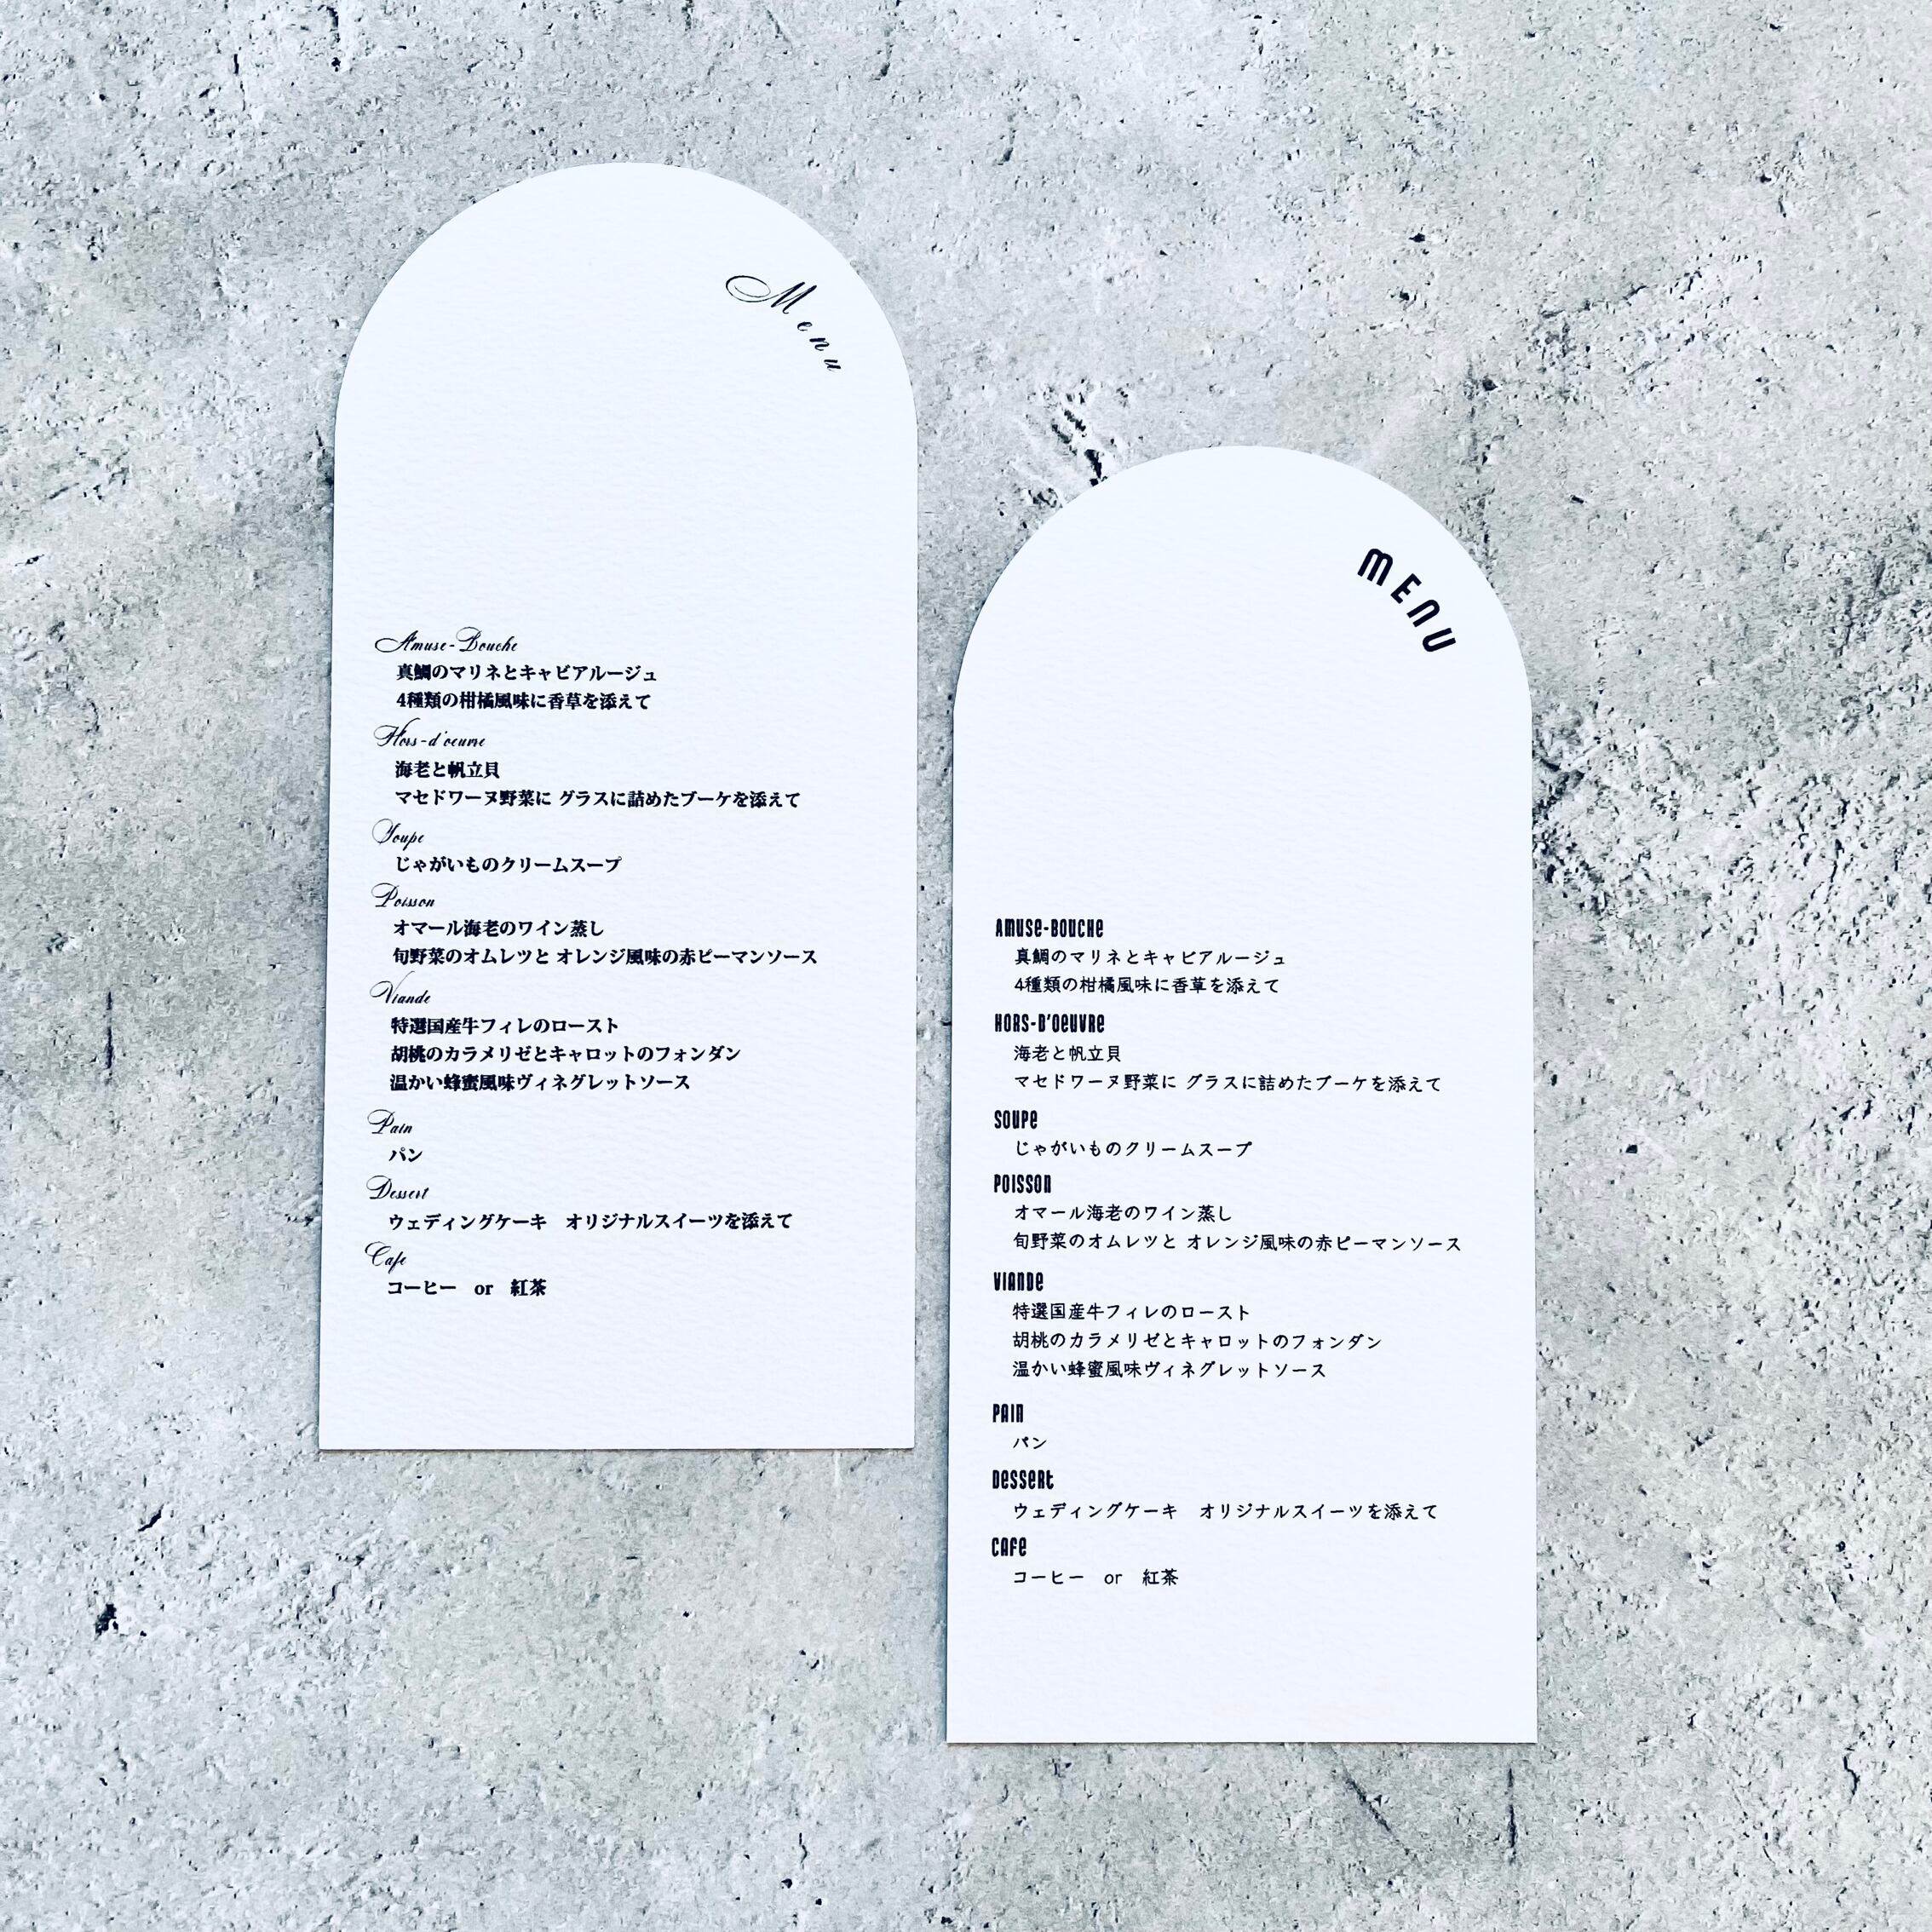 Menu
Amuse-Bouche
真鯛のマリネとキャビアルージュ
4種類の柑橘風味に香草を添えて
Hors-d'oeuvre
海老と帆立貝
マセドワーヌ野菜に グラスに詰めたブーケを添えて
Soupe
じゃがいものクリームスープ
Poisson
オマール海老のワイン蒸し
旬野菜のオムレツと オレンジ風味の赤ピーマンソース
Viande
特選国産牛フィレのロースト
胡桃のカラメリゼとキャロットのフォンダン
温かい蜂蜜風味ヴィネグレットソース
Pain
パン
Dessert
ウェディングケーキ　オリジナルスイーツを添えて
Cafe
コーヒー　or　紅茶
MENU
AMUSE-BOUCHE
真鯛のマリネとキャビアルージュ
4種類の柑橘風味に香草を添えて
HORS-D'OEUVRE
海老と帆立貝
マセドワーヌ野菜に グラスに詰めたブーケを添えて
SOUPE
じゃがいものクリームスープ
POISSON
オマール海老のワイン蒸し
旬野菜のオムレツと オレンジ風味の赤ピーマンソース
VIANDE
特選国産牛フィレのロースト
胡桃のカラメリゼとキャロットのフォンダン
温かい蜂蜜風味ヴィネグレットソース
PAIN
パン
DESSERT
ウェディングケーキ　オリジナルスイーツを添えて
CAFE
コーヒー　or　紅茶